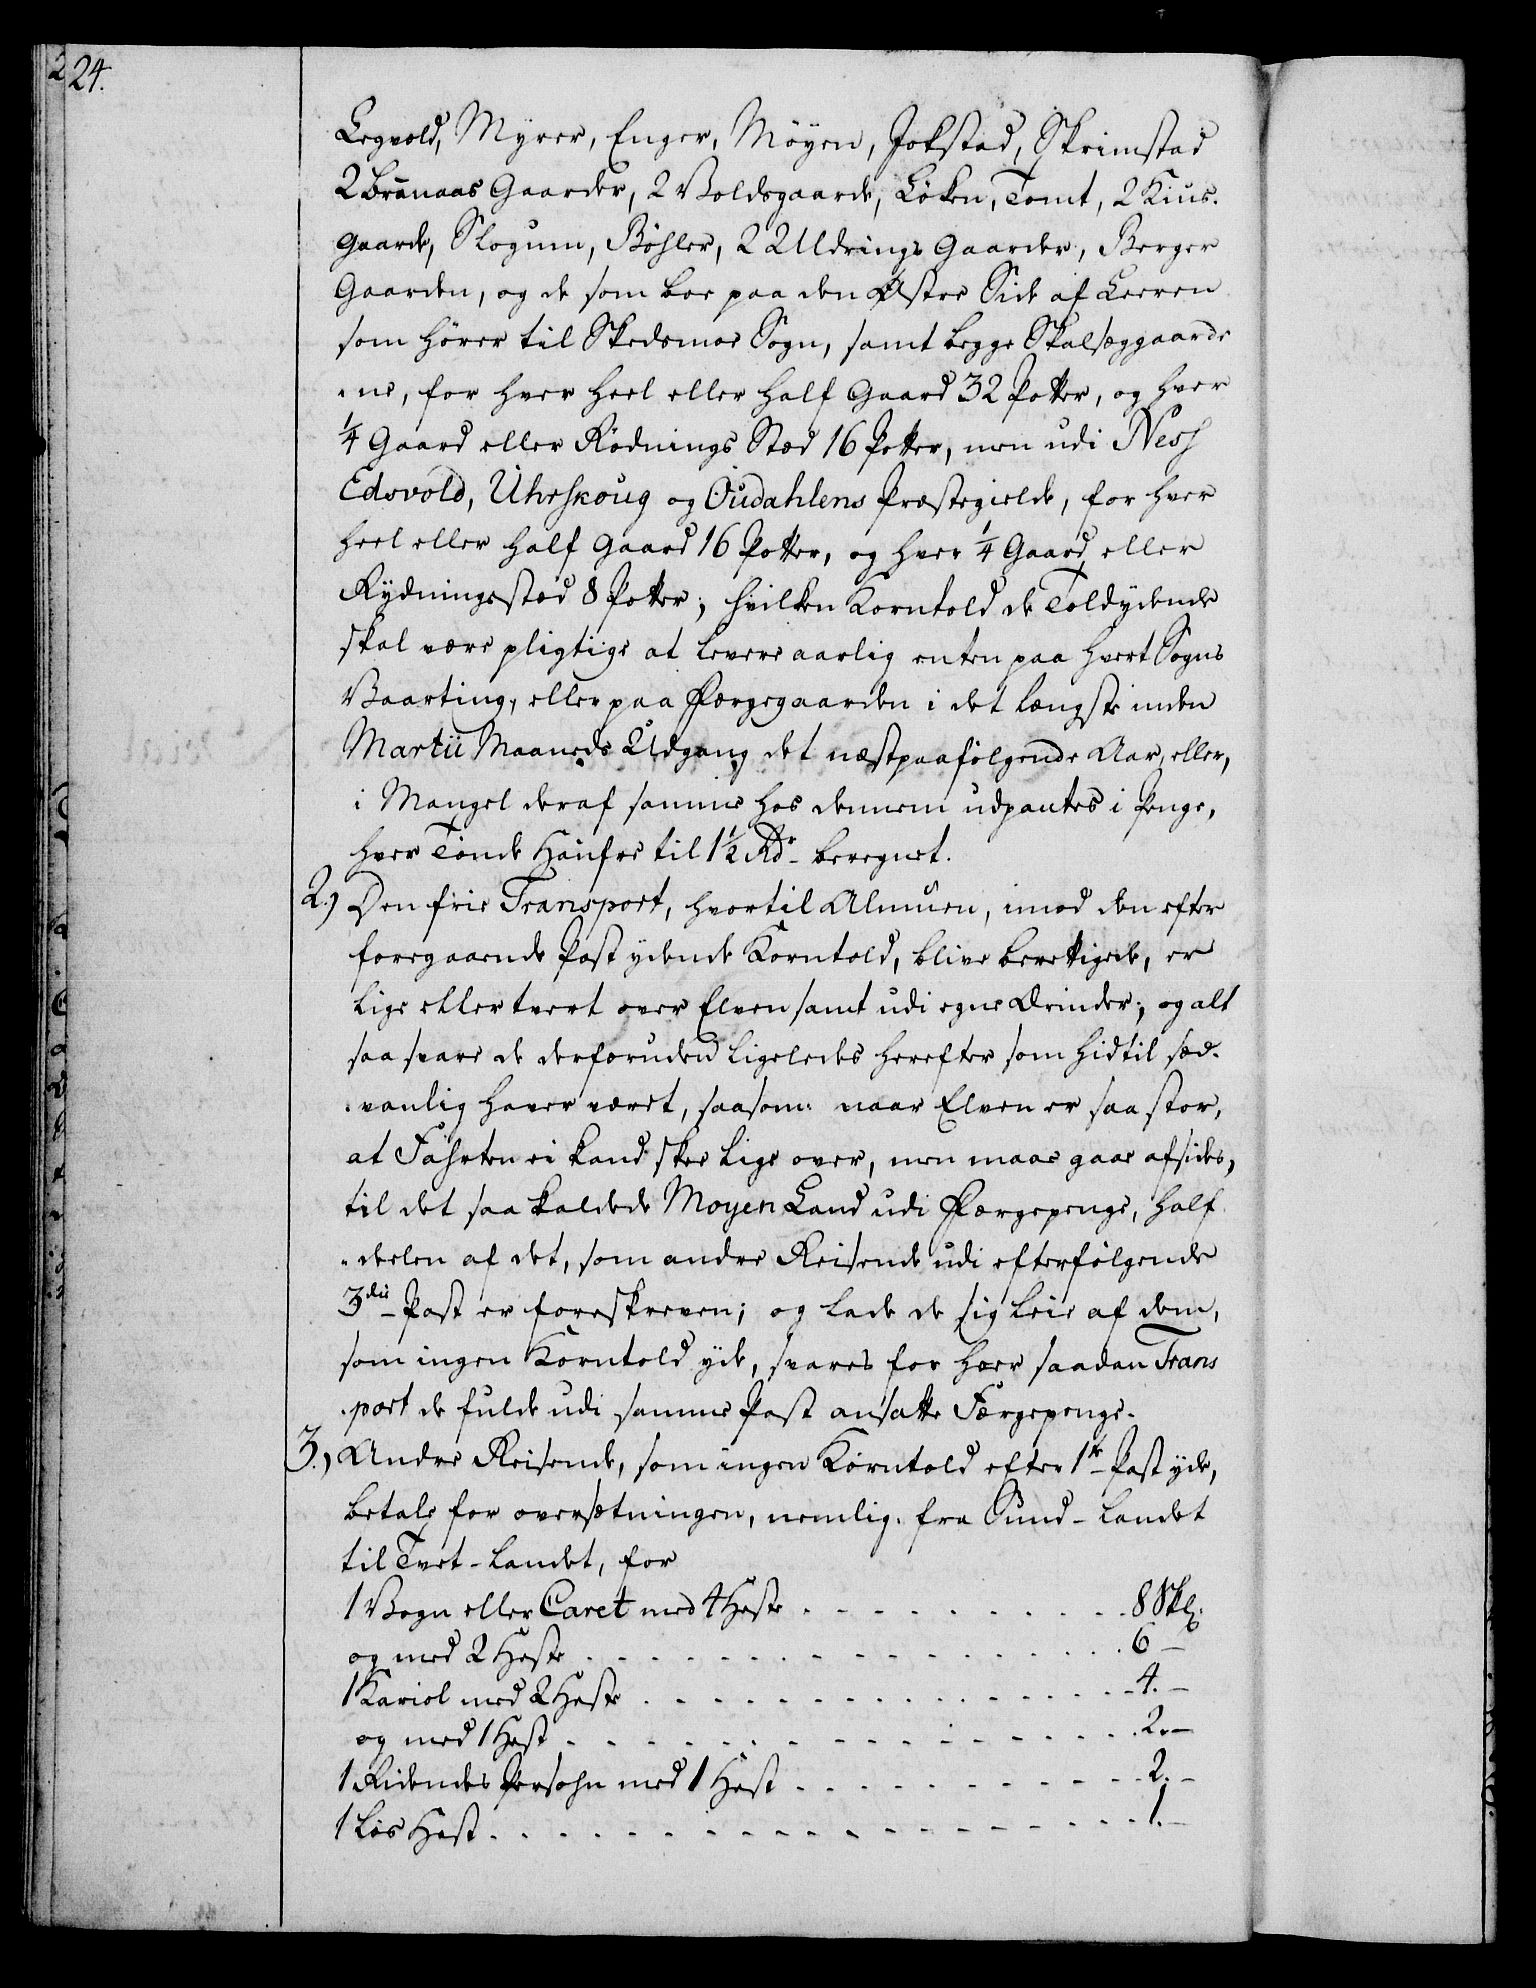 224.
Legvold, Myrer, Enger, Møyen, Jokstad, Skrimstad
2 Brånaas Gaarder, 2 Voldsgaarde, Løken, Tomt, 2 Kius-
gaarde, Slogum, Bøhler, 2 Uldrings Gaarder, Berger
Gaarden, og de som boe paa den Østre Side af Leeren
som hører til Skedsmoe Sogn, samt begge Skalsæggaarde
-ne, for hver heel eller half Gaard 32 Potter, og hver
1/4 Gaard eller Rødnings Stæd 16 Potter, men udi Nesh
Edsvold, Uhrskoug og Oudahlens Præstegielde, for hver
heel eller half Gaard 16 Potter, og hver 1/4 Gaard eller
Rydningsstæd 8 Potter; hvilken Korntold de Toldydende
skal være pligtige at levere aarlig enten paa hvert Sogns
Vaarting, eller paa Færgegaarden i det længste inden
Martii Maaneds Udgang det næstpaafølgende Aar, eller,
i Mangel deraf samme hos dennem udpantes i Penge,
hver Tønde Haufre til 1 1/2 Rdr beregnet.
2.) Den frie Transport, hvortil Almuen, imod den efter
foregaaende Post ydende Korntold, blive berettigede, er
lige eller tvert over Elven samt udi egne Ærinder; og alt
saa svare de derforuden ligeledes herefter som hidtil sæd-
-vanlig haver været, saasom: naar Elven er saa stor,
at Fahrten ei kand skee lige over, men maae gaae afsides,
til det saa kaldede Moyen Land udi Færgepenge, half-
-deelen af det, som andre Reisende udi efterfølgende
3die Post er foreskreven; og lade de sig leie af dem,
som ingen Korntold yde, svares for hver saadan Trans
-port de fulde udi samme Post ansatte Færgepenge.
3.) Andre Reisende, som ingen Korntold efter 1te Post yde,
betale for oversætningen, nemlig: fra Sund-landet
til Tvet-landet, for
1 Vogn eller Caret med 4 Heste . . . . . . . . 8 Skl.
og med 2 Heste . . . . . . . . . . . . 6 -
1 Kariol med 2 Heste . . . . . . . . . . . 4. -
og med 1 Hest . . . . . . . . . . . . 2. -
1 Ridendes Persohn med 1 Hest . . . . . . . . 2. -
1 løs Hest . . . . . . . . . . . . . . 1. -